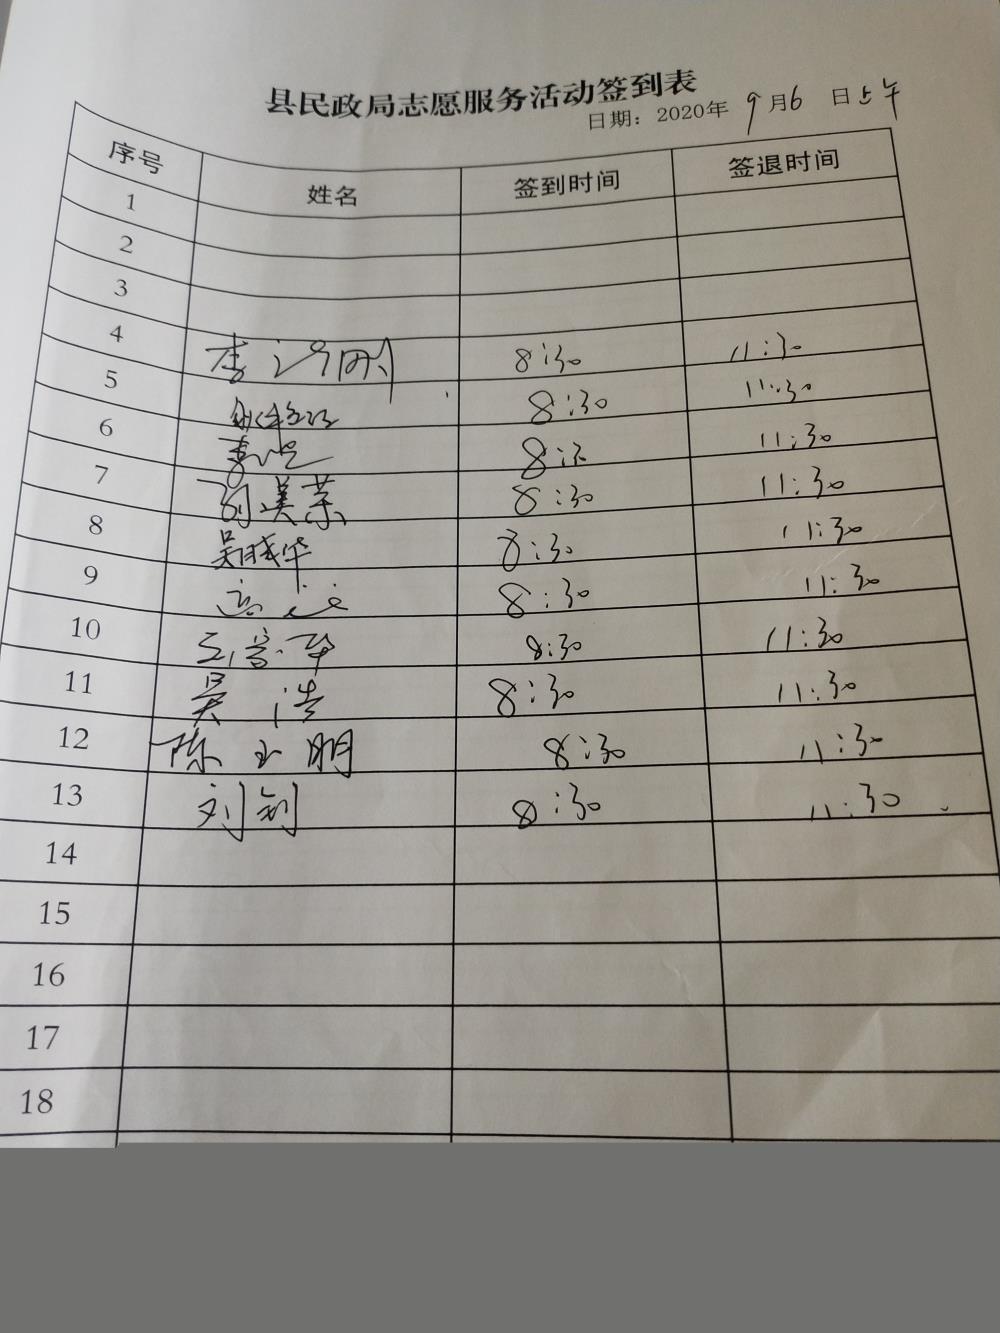 县民政局志愿服务活动签到表
日期：2020年 9月6 日上午
序号 姓名 签到时间 签退时间
1
2
3
4 8:30 11:30
5 8:30 11:30
6 8:30 11:30
7 8:30 11:30
8 吴晓华 8:30 11:30
9 8:30 11:30
10 8:30 11:30
11 吴浩 8:30 11:30
12 陈玉明 8:30 11:30
13 刘钊 8:30 11:30
14
15
16
17
18